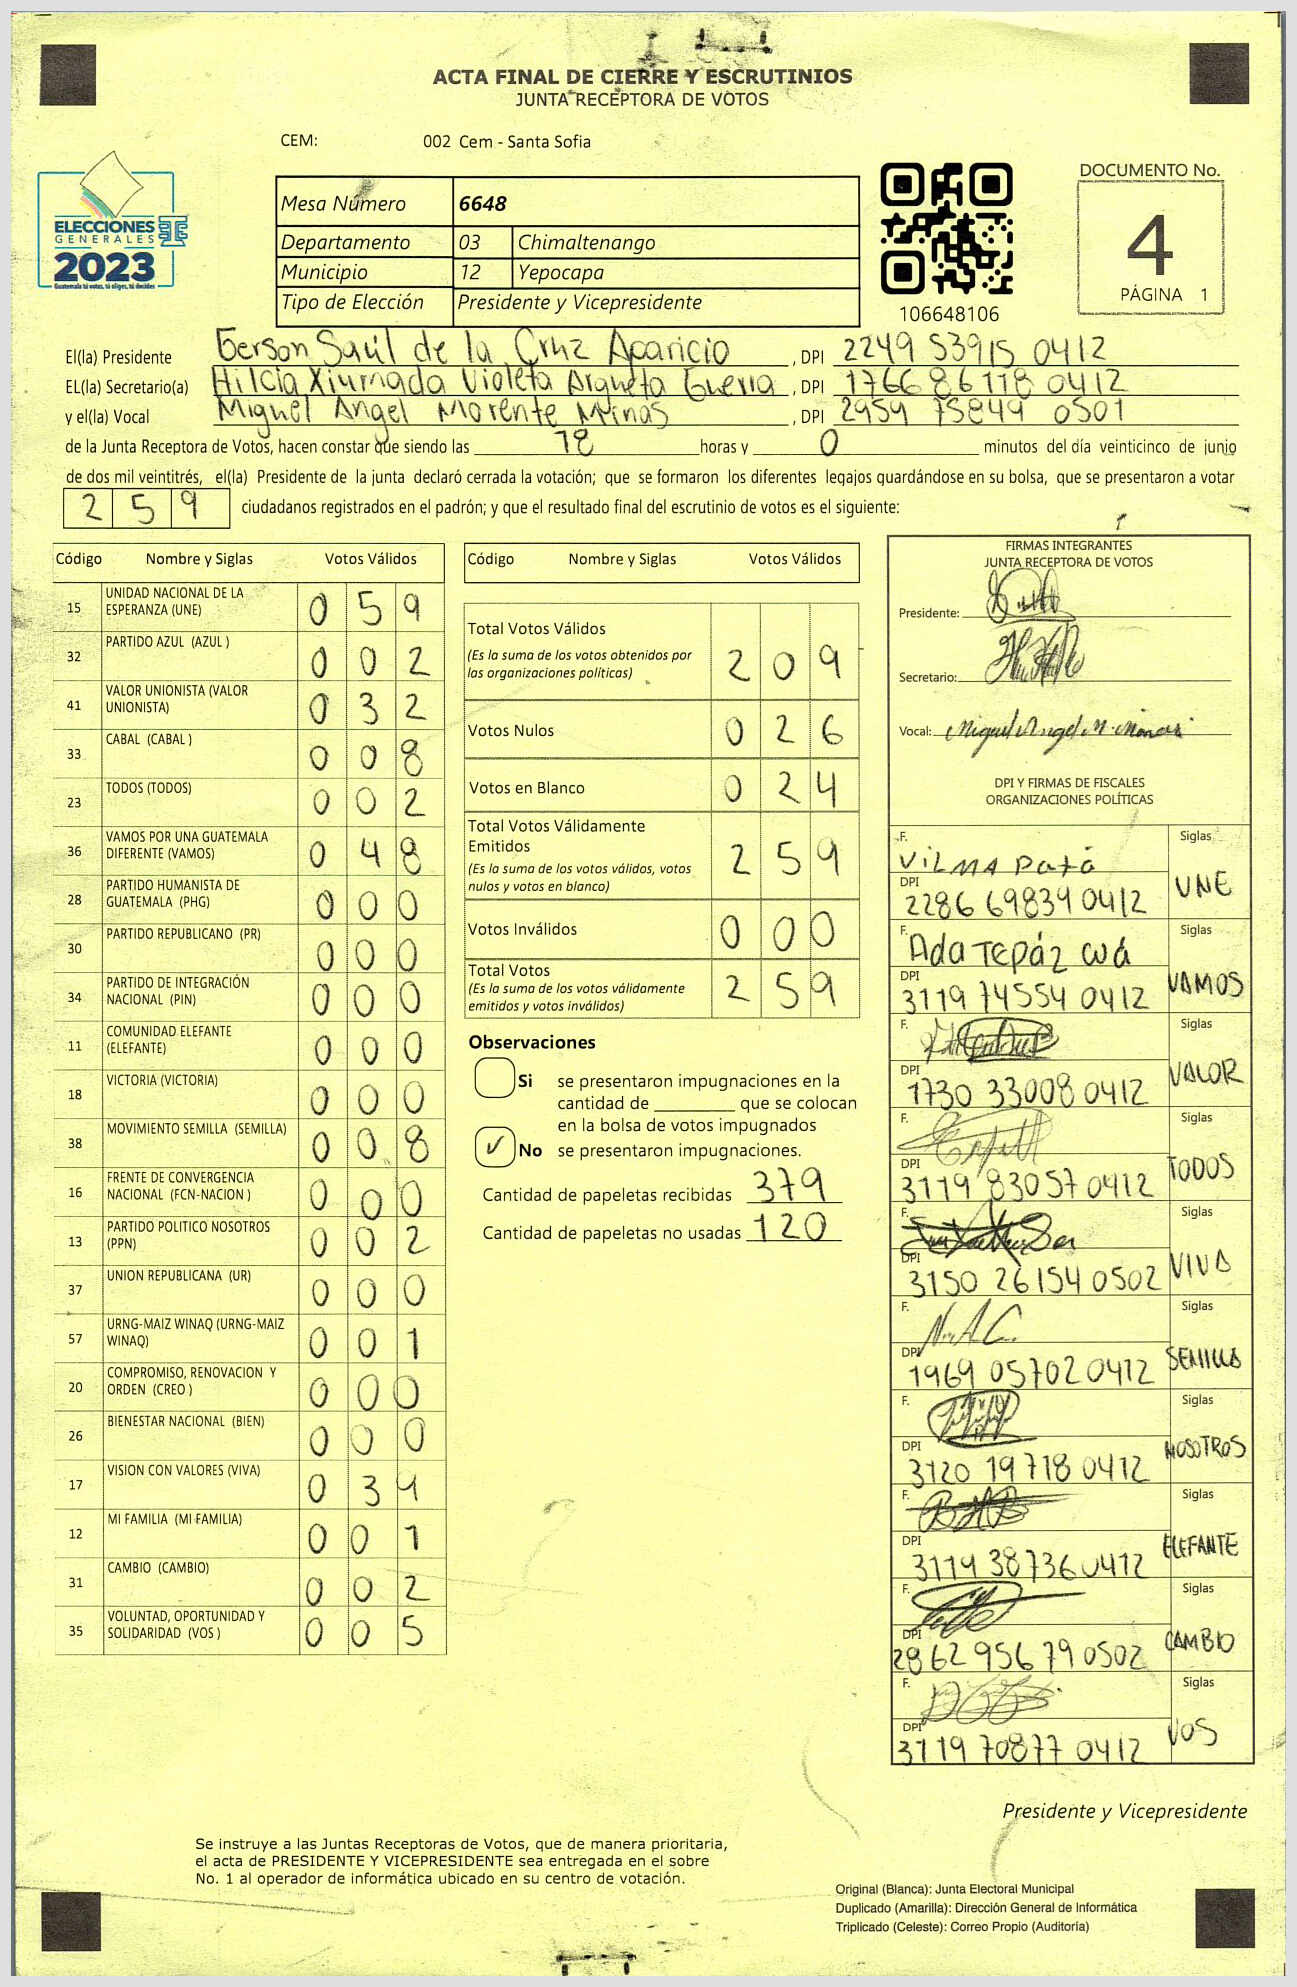 ACTA FINAL DE CIERRE Y ESCRUTINIOS
JUNTA RECEPTORA DE VOTOS
CEM: 002 Cem - Santa Sofia
ELECCIONES
GENERALES
2023
Guatemala tú votas, tú eliges, tú decides
Mesa Número 6648
Departamento 03 Chimaltenango
Municipio 12 Yepocapa
Tipo de Elección Presidente y Vicepresidente
106648106
DOCUMENTO No.
4
PÁGINA 1
El(la) Presidente Gerson Saúl de la Cruz Aparicio , DPI 2249 53915 0412
EL(la) Secretario(a) Hilcia Xiumada Violeta Argueta Guerra , DPI 1766 86118 0412
y el(la) Vocal Miguel Angel Morente Minas , DPI 2959 75849 0501
de la Junta Receptora de Votos, hacen constar que siendo las 18 horas y 0 minutos del día veinticinco de junio
de dos mil veintitrés, el(la) Presidente de la junta declaró cerrada la votación; que se formaron los diferentes legajos guardándose en su bolsa, que se presentaron a votar
2 5 9 ciudadanos registrados en el padrón; y que el resultado final del escrutinio de votos es el siguiente:
Código Nombre y Siglas Votos Válidos
15 UNIDAD NACIONAL DE LA ESPERANZA (UNE) 0 5 9
32 PARTIDO AZUL (AZUL ) 0 0 2
41 VALOR UNIONISTA (VALOR UNIONISTA) 0 3 2
33 CABAL (CABAL ) 0 0 8
23 TODOS (TODOS) 0 0 2
36 VAMOS POR UNA GUATEMALA DIFERENTE (VAMOS) 0 4 8
28 PARTIDO HUMANISTA DE GUATEMALA (PHG) 0 0 0
30 PARTIDO REPUBLICANO (PR) 0 0 0
34 PARTIDO DE INTEGRACIÓN NACIONAL (PIN) 0 0 0
11 COMUNIDAD ELEFANTE (ELEFANTE) 0 0 0
18 VICTORIA (VICTORIA) 0 0 0
38 MOVIMIENTO SEMILLA (SEMILLA) 0 0 8
16 FRENTE DE CONVERGENCIA NACIONAL (FCN-NACION ) 0 0 0
13 PARTIDO POLITICO NOSOTROS (PPN) 0 0 2
37 UNION REPUBLICANA (UR) 0 0 0
57 URNG-MAIZ WINAQ (URNG-MAIZ WINAQ) 0 0 1
20 COMPROMISO, RENOVACION Y ORDEN (CREO ) 0 0 0
26 BIENESTAR NACIONAL (BIEN) 0 0 0
17 VISION CON VALORES (VIVA) 0 3 9
12 MI FAMILIA (MI FAMILIA) 0 0 1
31 CAMBIO (CAMBIO) 0 0 2
35 VOLUNTAD, OPORTUNIDAD Y SOLIDARIDAD (VOS ) 0 0 5
Código Nombre y Siglas Votos Válidos
Total Votos Válidos 2 0 9
(Es la suma de los votos obtenidos por
las organizaciones políticas)
Votos Nulos 0 2 6
Votos en Blanco 0 2 4
Total Votos Válidamente
Emitidos 2 5 9
(Es la suma de los votos válidos, votos
nulos y votos en blanco)
Votos Inválidos 0 0 0
Total Votos 2 5 9
(Es la suma de los votos válidamente
emitidos y votos inválidos)
Observaciones
Si se presentaron impugnaciones en la
cantidad de ________ que se colocan
en la bolsa de votos impugnados
✓ No se presentaron impugnaciones.
Cantidad de papeletas recibidas 379
Cantidad de papeletas no usadas 120
FIRMAS INTEGRANTES
JUNTA RECEPTORA DE VOTOS
Presidente:
Secretario:
Vocal: Miguel Angel M. Minas
DPI Y FIRMAS DE FISCALES
ORGANIZACIONES POLÍTICAS
F. VILMA Patá Siglas
DPI 2286 69839 0412 UNE
F. Ada Tepáz cuá Siglas
DPI 3119 74554 0412 VAMOS
F. Siglas
DPI 1730 33008 0412 VALOR
F. Siglas
DPI 3119 83057 0412 TODOS
F. Siglas
DPI 3150 26154 0502 VIVA
F. N.A.C. Siglas
DPI 1969 05702 0412 SEMILLA
F. Siglas
DPI 3120 19718 0412 NOSOTROS
F. Siglas
DPI 3119 38736 0412 ELEFANTE
F. Siglas
DPI 2862 95679 0502 CAMBIO
F. Siglas
DPI 3119 70877 0412 VOS
Presidente y Vicepresidente
Se instruye a las Juntas Receptoras de Votos, que de manera prioritaria,
el acta de PRESIDENTE Y VICEPRESIDENTE sea entregada en el sobre
No. 1 al operador de informática ubicado en su centro de votación.
Original (Blanca): Junta Electoral Municipal
Duplicado (Amarilla): Dirección General de Informática
Triplicado (Celeste): Correo Propio (Auditoría)